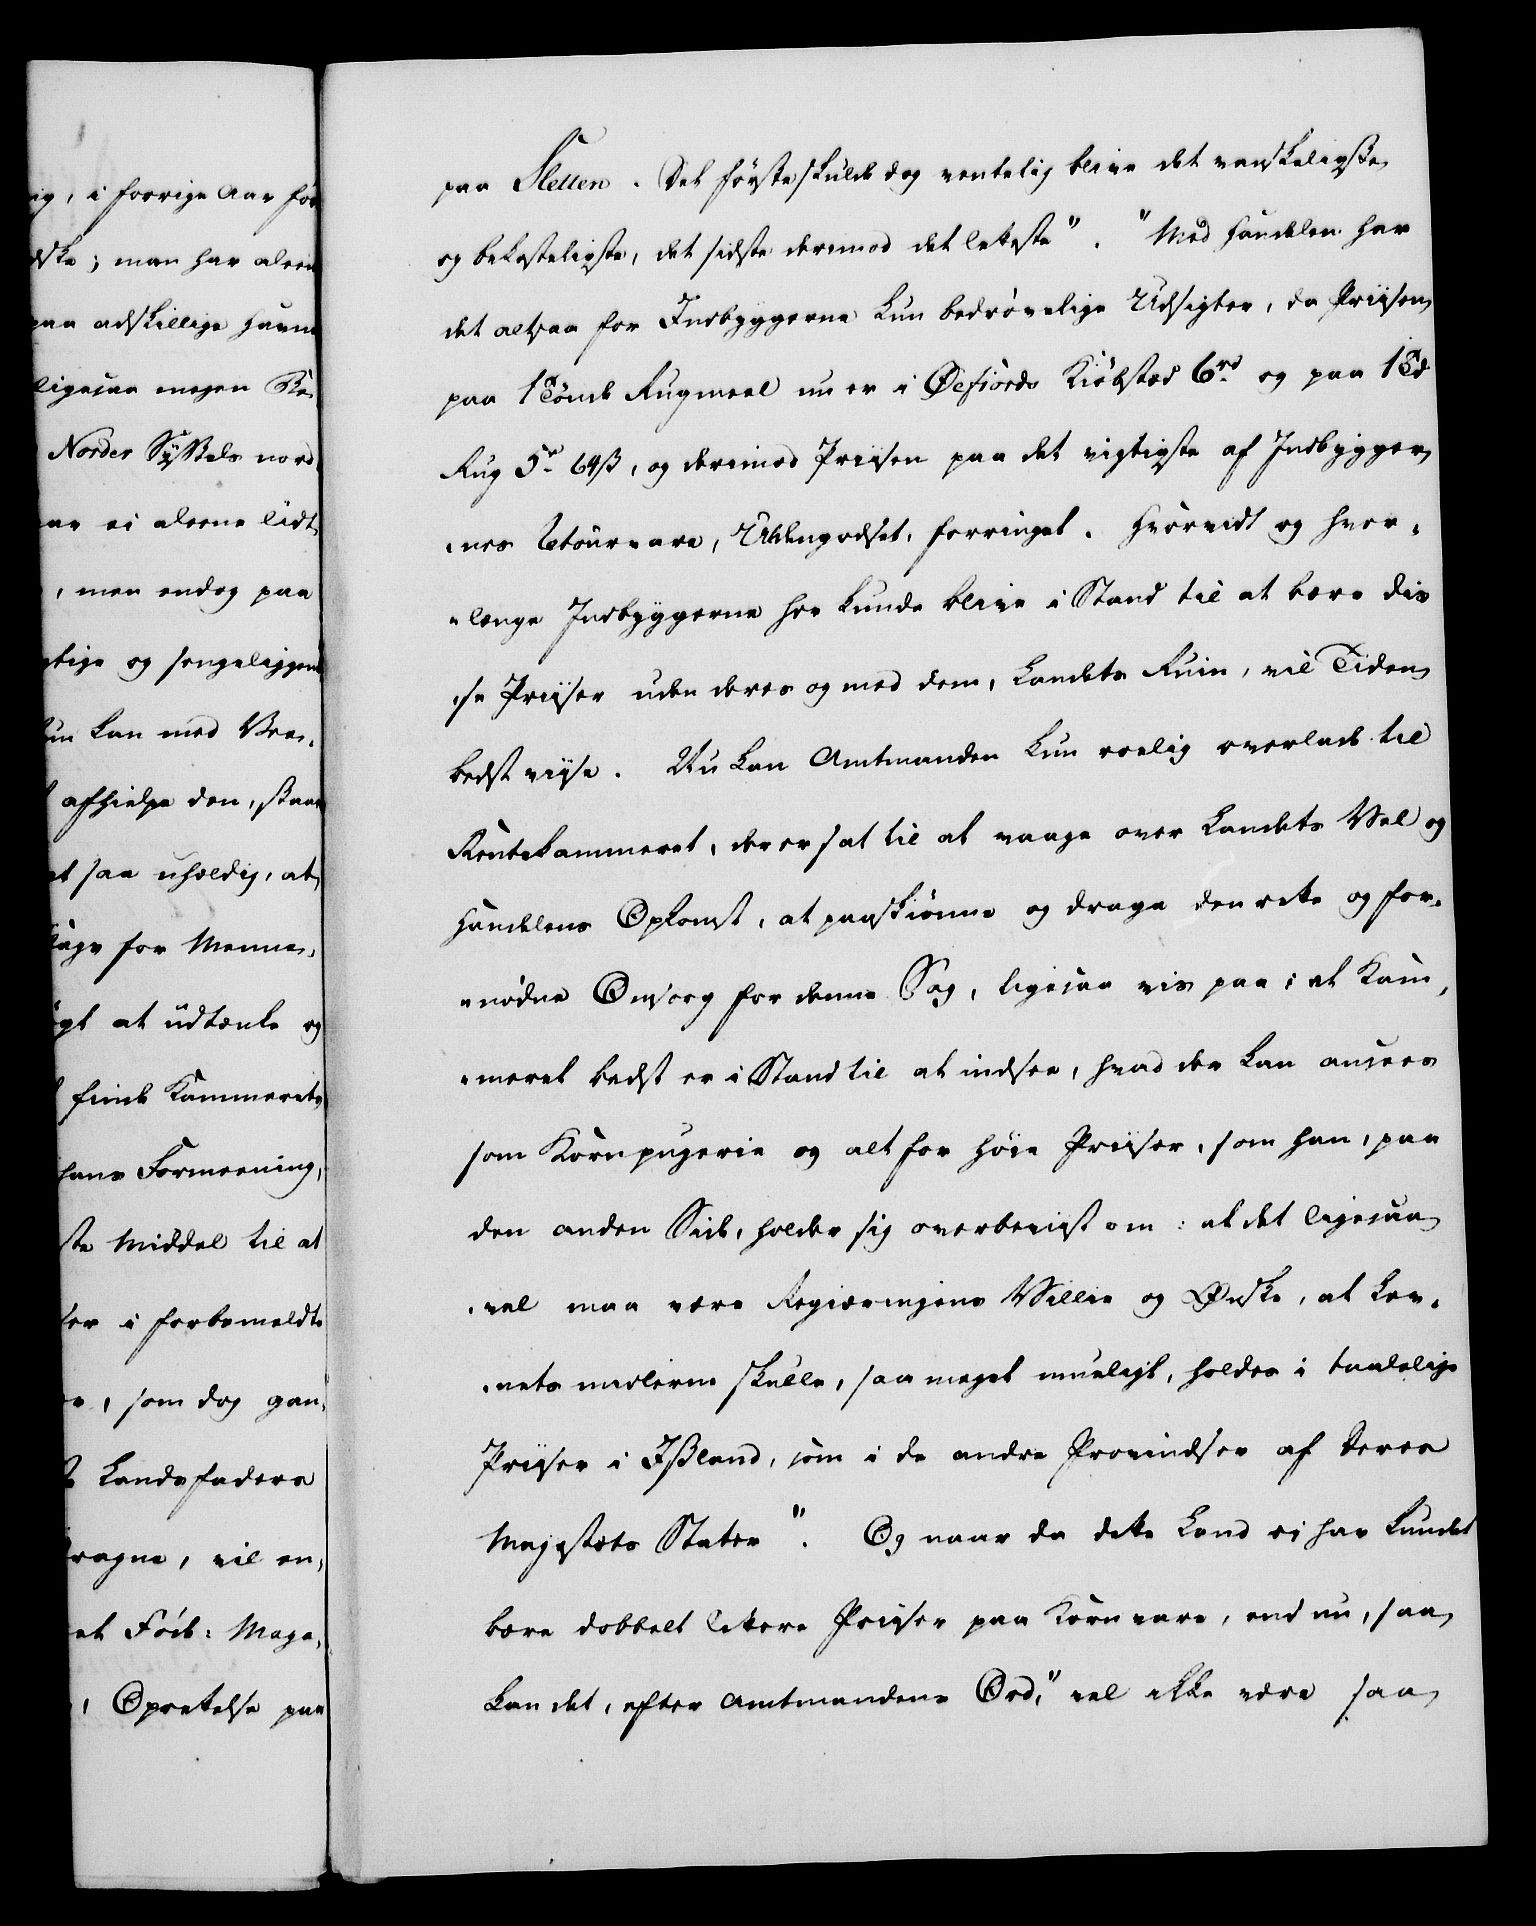 ig, i forrige Aar for
dske; man har aleen
paa adskillige Havne
ligesaa megen
Norder Sÿssels nord
ar ei aleene lidt
, men endog paa
gtige og sengeliggend
kan med
afhielpe den, staar
et saa uheldig, at
for Menne-
gt at üdtænke og
finde Kammerets
hans Formeening,
ste Middel til at
ser i forbemeldte
, som dog gan-
Landsfaders
dragne, vil en-
et Föde: Maga-
, Oprettelse paa
paa Sletten. Det förste skulde dog ventelig blive det vanskeligste
og bekosteligste, det sidste derimod det letteste". "Med Handelen har
det altsaa for Indbyggerne kun bedrövelige Udsigter, da Priisen
paa 1 Tönde Rugmeel nu er i Öefiords Kiöbstæd 6 rd og paa 1 Td
Rug 5 rd 64 ß, og derimod Priisen paa det vigtigste af Indbygger-
-nes Retourvare, Uldengodset, forringet. Hvorvidt og hvor-
-længe Indbyggerne her kunde blive i Stand til at bære dis
-se Priiser uden deres og med dem, Landets Ruin, vil Tiden
bedst viise. Nu kan Amtmanden kun roelig overlade til
Rentekammeret, der er sat til at vaage over Landets Vel og
Handelens Opkomst, at paaskiönne og drage den rette og for-
-nödne Omsorg for denne Sag, ligesaa vis paa: at Kam-
-meret bedst er i Stand til at indsee, hvad der kan ansees
som Kornpugerie og alt for höie Priiser, som han, paa
den anden Side, holder sig overbeviist om: at det ligesaa
-vel maa være Regieringens Villie og Önske, at Kor-
-nets midlerne skulle, saa meget mueligt, holdes i taalelige
Priiser i Ißland, som i de andre Provindser af Deres
Majestæts Stater". Og naar da dette Land ei har kundet
bære dobbelt lettere Priiser paa Kornvare, end nu, saa
kan det, efter Amtmandens Ord, "vel ikke være saa